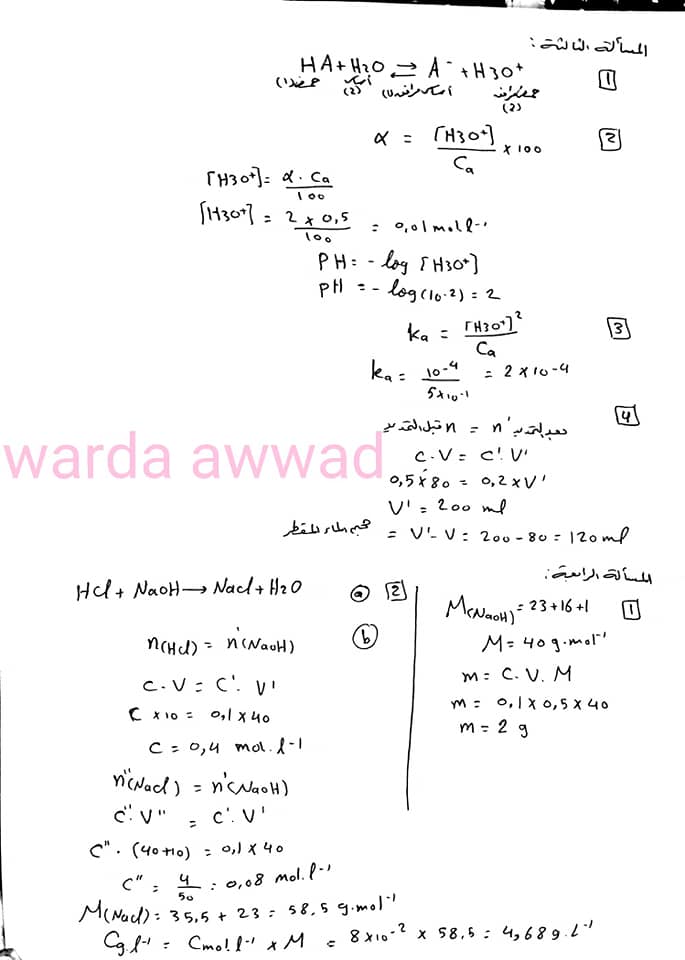 المسألة الثالثة:
HA + H2O ⇌ A⁻ + H3O⁺ [1]
حمض(1) أساس(2) أساس مرافق(1) حمض مرافق(2)
α = [H3O⁺]/Ca × 100 [2]
[H3O⁺] = α . Ca/100
[H3O⁺] = 2 × 0,5/100 = 0,01 mol l⁻¹
PH = - log [H3O⁺]
pH = - log(10⁻²) = 2
ka = [H3O⁺]²/Ca [3]
ka = 10⁻⁴/5×10⁻¹ = 2 × 10⁻⁴
n قبل التمديد = n' بعد التمديد [4]
C.V = C'.V'
0,5 × 80 = 0,2 × V'
V' = 200 ml
حجم الماء المقطر = V' - V = 200 - 80 = 120 ml
warda awwad
المسألة الرابعة:
M(NaOH) = 23+16+1 [1]
M = 40 g.mol⁻¹
m = C.V.M
m = 0,1 × 0,5 × 40
m = 2 g
HCl + NaOH → NaCl + H2O (a) [2]
n(HCl) = n'(NaOH) (b)
C.V = C'.V'
C × 10 = 0,1 × 40
C = 0,4 mol.l⁻¹
n''(NaCl) = n'(NaOH)
C''.V'' = C'.V'
C'' . (40+10) = 0,1 × 40
C'' = 4/50 = 0,08 mol.l⁻¹
M(NaCl) = 35,5 + 23 = 58,5 g.mol⁻¹
Cg.l⁻¹ = Cmol.l⁻¹ × M = 8×10⁻² × 58,5 = 4,68 g.l⁻¹